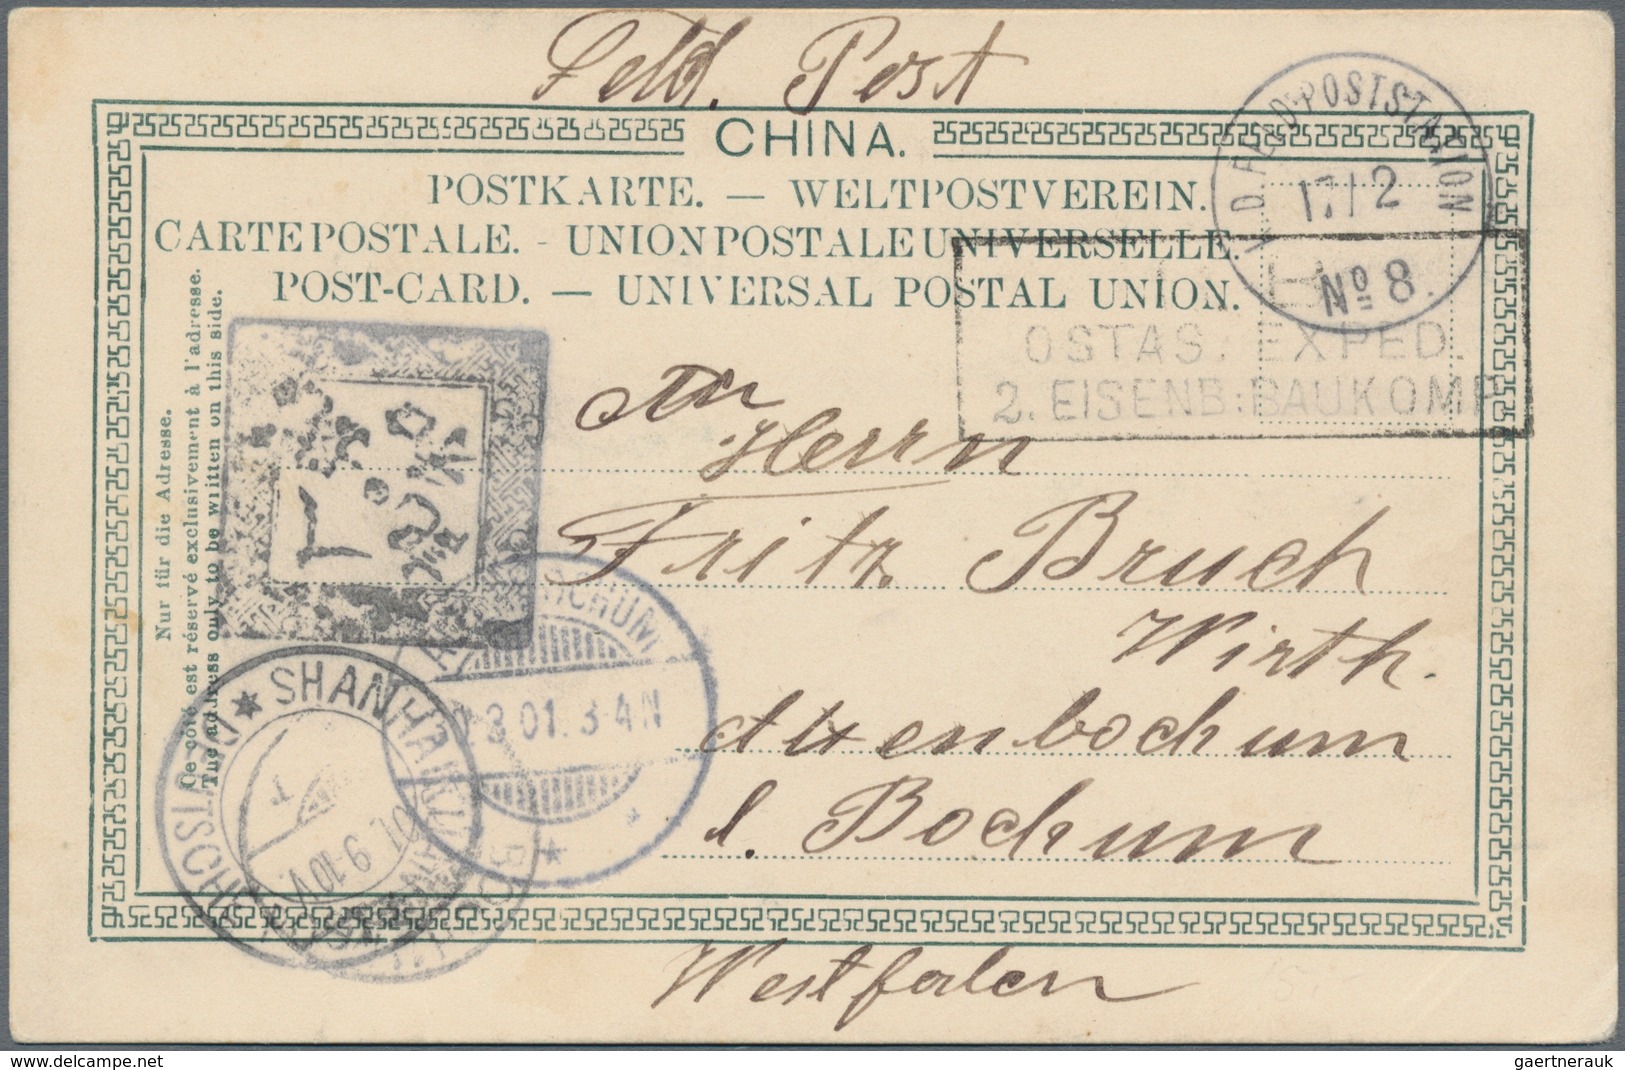 Feld. Post
CHINA.
POSTKARTE. — WELTPOSTVEREIN.
CARTE POSTALE. - UNION POSTALE UNIVERSELLE.
POST-CARD. — UNIVERSAL POSTAL UNION.
Nur für die Adresse.
Ce côté est réservé exclusivement à l'adresse.
The address only to be written on this side.
K.D. FELD-POSTSTATION
17/2
No 8.
OSTAS. EXPED.
2. EISENB: BAUKOMP.
An
Herrn
Fritz Bruch
Wirth.
Altenbochum
b. Bochum
Westfalen
3.01. 3-4 N
SHANHAIKWAN
DEUTSCHE POST
01 9-10V
gaertnerauk